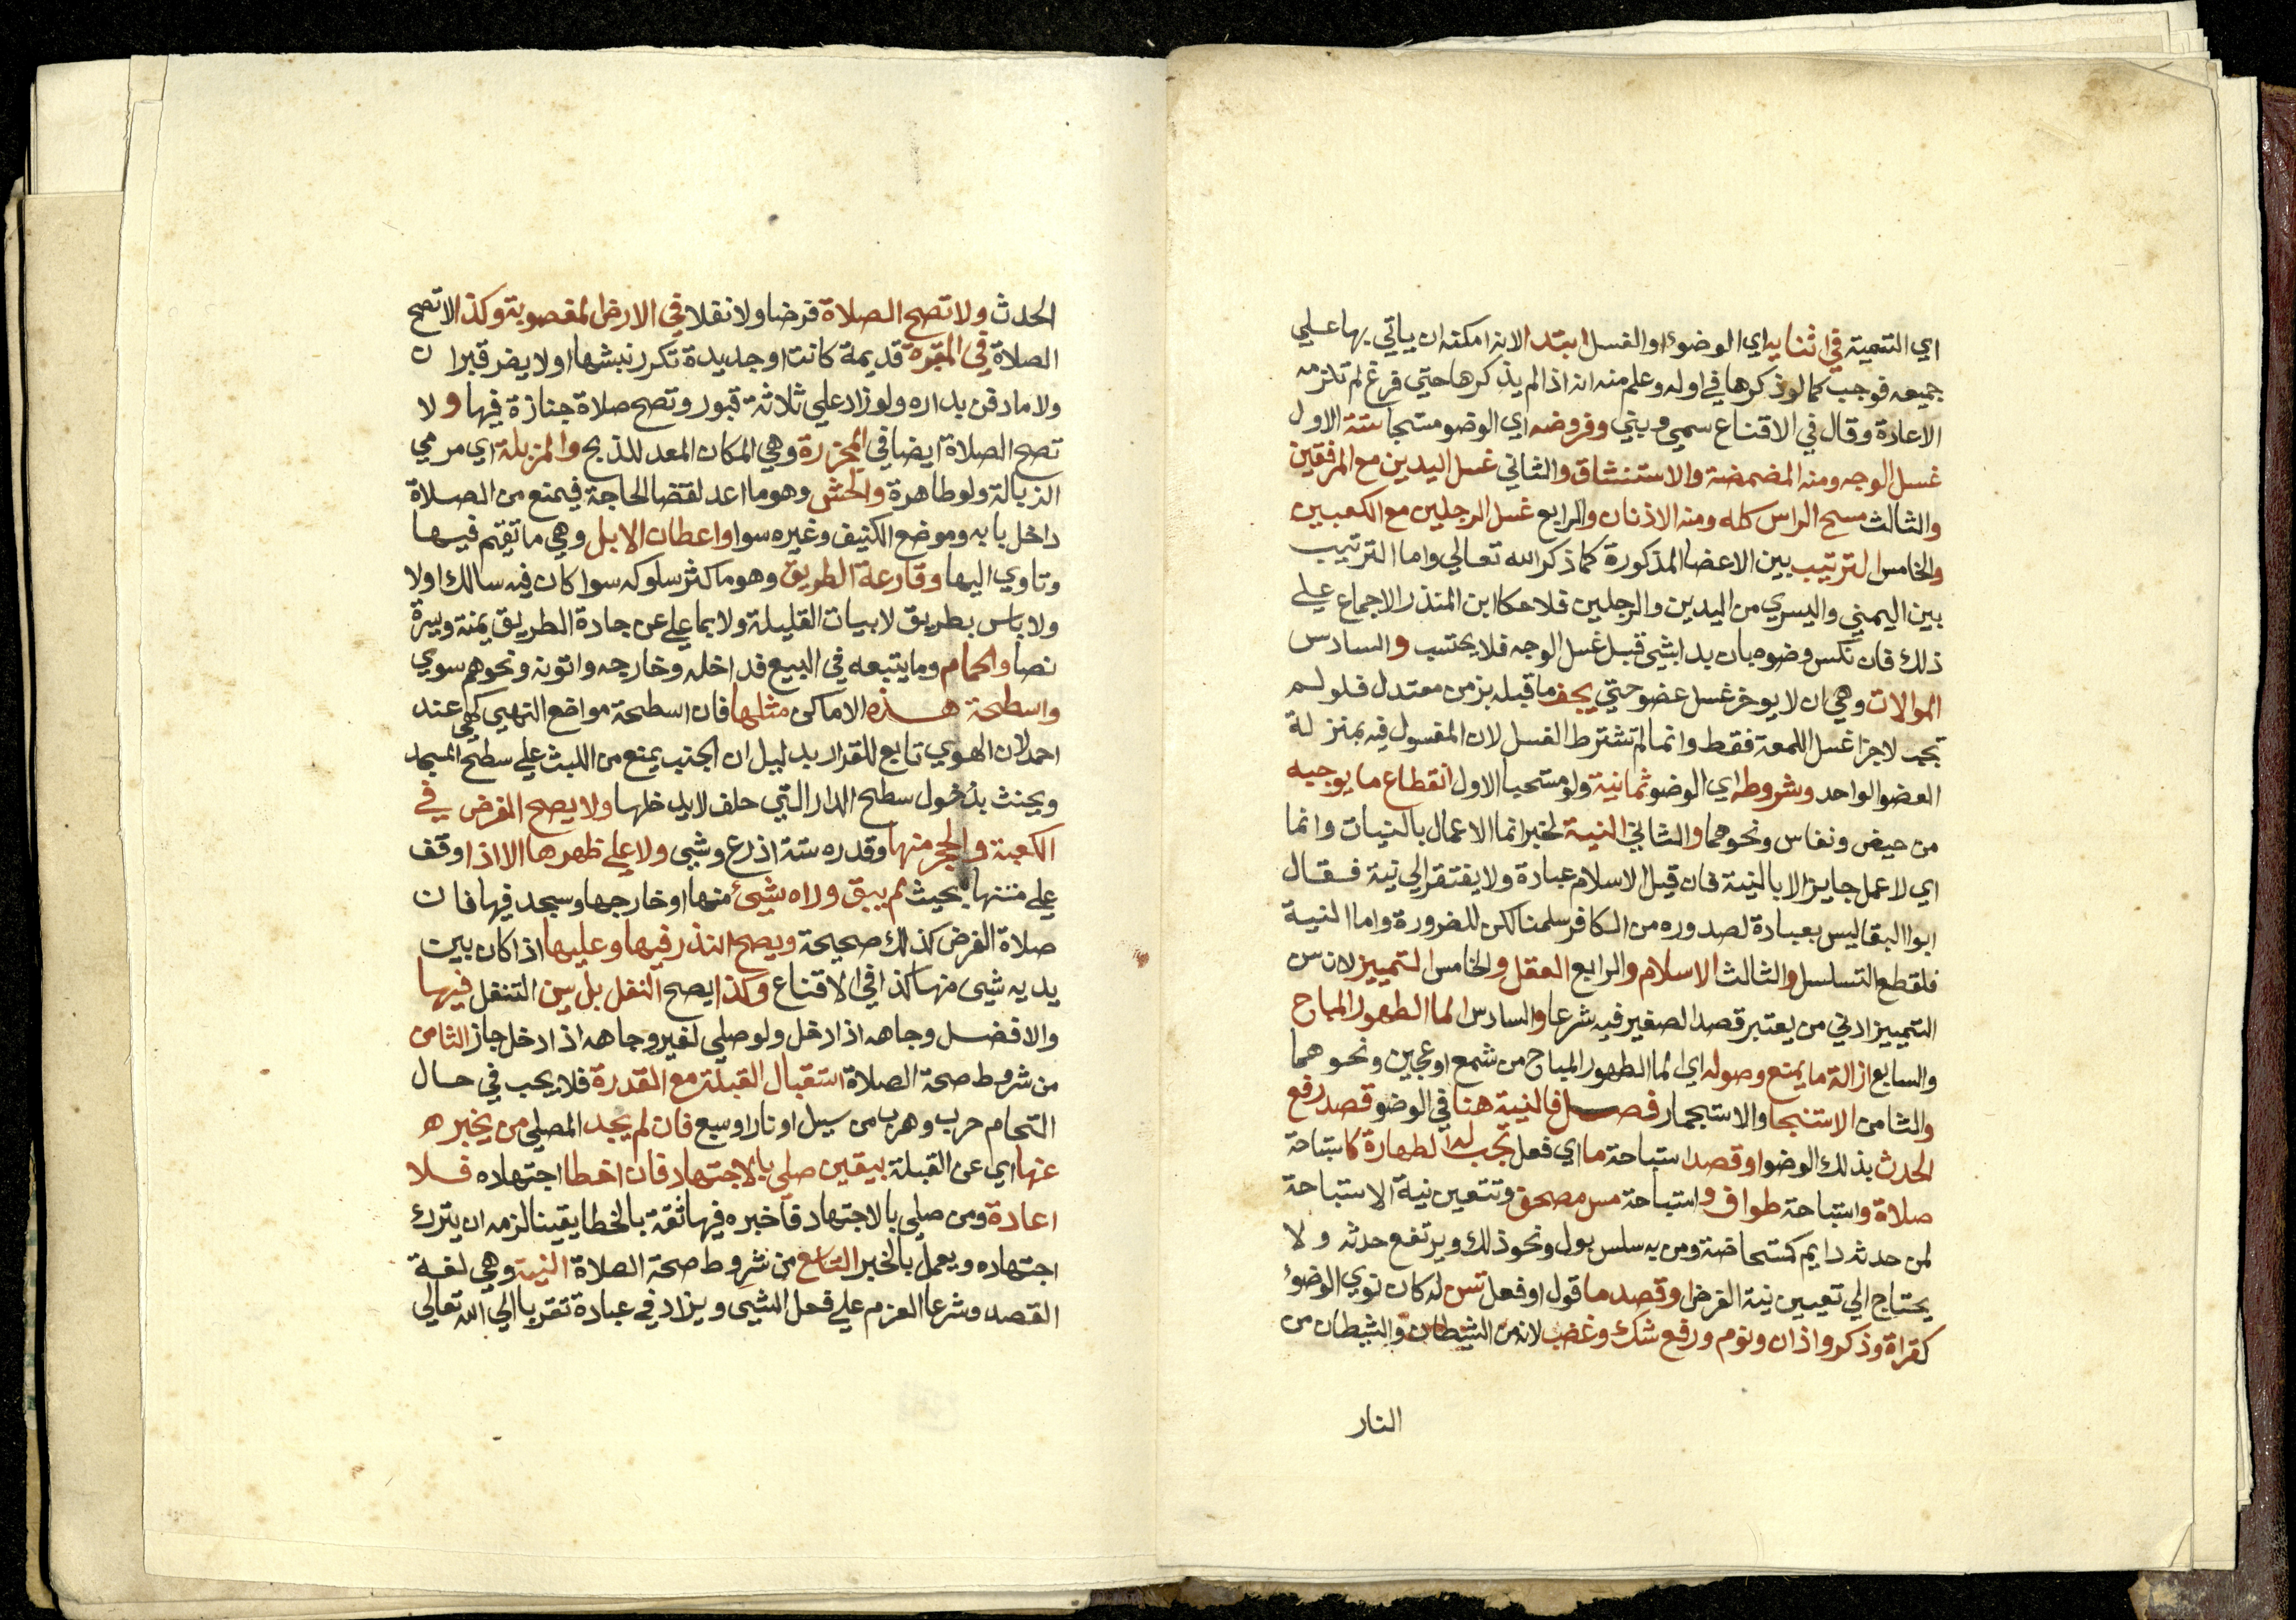 اي التسمية في اثنايه اي الوضوء او الغسل ابتدا لانه امكنه ان ياتي بها علي
جميعه فوجب كما لو ذكرها في اوله وعلم منه انه اذا لم يذكرها حتي فرغ لم تلزمه
الاعادة وقال في الاقناع سمي وبني وفروضه اي الوضو مستحبا ستة الاول
غسل الوجه ومنه المضمضة والاستنشاق والثاني غسل اليدين مع المرفقين
والثالث مسح الراس كله ومنه الاذنان والرابع غسل الرجلين مع الكعبين
والخامس الترتيب بين الاعضا المذكورة كما ذكر الله تعالي واما الترتيب
بين اليمني واليسري من اليدين والرجلين فلا حكا ابن المنذر الاجماع علي
ذلك فان نكس وضوه بان بدا بشي قبل غسل الوجه فلا يحتسب والسادس
الموالات وهي ان لا يوخر غسل عضو حتي يجف ما قبله بزمن معتدل فلو لم
تجب لاجزا غسل اللمعة فقط وانما لم تشترط الغسل لان المغسول فيه بمنزلة
العضو الواحد وشروطه اي الوضو ثمانية ولو مستحبا الاول انقطاع ما يوجبه
من حيض ونفاس ونحوهما والثاني النية لخبر انما الاعمال بالنيات وانما
اي لا عمل جايز الا بالنية فان قيل الاسلام عبادة ولا يفتقر الي نية فقال
ابوا البقا ليس بعبادة لصدوره من الكافر سلمنا لكن للضرورة واما النية
فلقطع التسلسل والثالث الاسلام والرابع العقل والخامس التمييز لان سن
التمييز ادني من يعتبر قصد الصغير فيه شرعا والسادس الما الطهور المباح
والسابع ازالة ما يمنع وصوله اي الما الطهور المباح من شمع او عجين ونحوهما
والثامن الاستنجا والاستجمار فصل فالنية هنا في الوضو قصد رفع
الحدث بذلك الوضو او قصد استباحة ما اي فعل تجب له الطهارة كاستباحة
صلاة واستباحة طواف واستباحة مس مصحف وتتعين نية الاستباحة
لمن حدثه دايم كمستحاضة ومن به سلس بول ونحو ذلك ويرتفع حدثه ولا
يحتاج الي تعيين نية الفرض او قصد ما قول او فعل تسن له كان نوي الوضوء
كقراة وذكر واذان ونوم ورفع شك وغضب لانه من الشيطان والشيطان من
النار
الحدث ولا تصح الصلاة فرضا ولا نفلا في الارض المغصوبة وكذا لا تصح
الصلاة في المقبرة قديمة كانت او جديدة تكرر نبشها او لا يضر قبران
ولا ما دفن بداره ولو زاد علي ثلاثة قبور وتصح صلاة جنازة فيها ولا
تصح الصلاة ايضا في المجزرة وهي المكان المعد للذبح والمزبلة اي مرمي
الزبالة ولو طاهرة والحش وهو ما اعد لقضا الحاجة فيمنع من الصلاة
داخل بابه وموضع الكنيف وغيره سوا واعطان الابل وهي ما تقيم فيها
وتاوي اليها وقارعة الطريق وهو ما كثر سلوكه سوا كان فيه سالك او لا
ولا باس بطريق لابيات القليلة ولا بما علي عن جادة الطريق يمنة ويسرة
نصا والحمام وما يتبعه في البيع فداخله وخارجه واتونه ونحوهم سوي
واسطحة هذه الاماكن مثلها فان اسطحة مواضع النهي كهي عند
احمد لان الهوي تابع للقرار بدليل ان الجنب يمنع من اللبث علي سطح المسجد
ويحنث بدخول سطح الدار التي حلف لا يدخلها ولا يصح الفرض في
الكعبة والحجر منها وقدره ستة اذرع وشي ولا علي ظهرها الا اذا وقف
علي منتهاها بحيث لم يبق وراه شيئ منها او خارجها وسجد فيها فان
صلاة الفرض كذلك صحيحة ويصح النذر فيها وعليها اذا كان بين
يديه شيى منها كذا في الاقناع وكذا يصح النفل بل يسن التنفل فيها
والافضل وجاهه اذا دخل ولو صلي لغير وجاهه اذا دخل جاز الثامن
من شروط صحة الصلاة استقبال القبلة مع القدرة فلا يجب في حال
التحام حرب وهرب من سيل او نار او سبع فان لم يجد المصلي من يخبره
عنها اي عن القبلة بيقين صلي بالاجتهاد فان اخطا اجتهاده فلا
اعادة ومن صلي بالاجتهاد فاخبره فيها ثقة بالخطا يقينا لزمه ان يترك
اجتهاده ويعمل بالخبر التاسع من شروط صحة الصلاة النية وهي لغة
القصد وشرعا العزم علي فعل الشيى ويزاد في عبادة تقربا الي الله تعالي